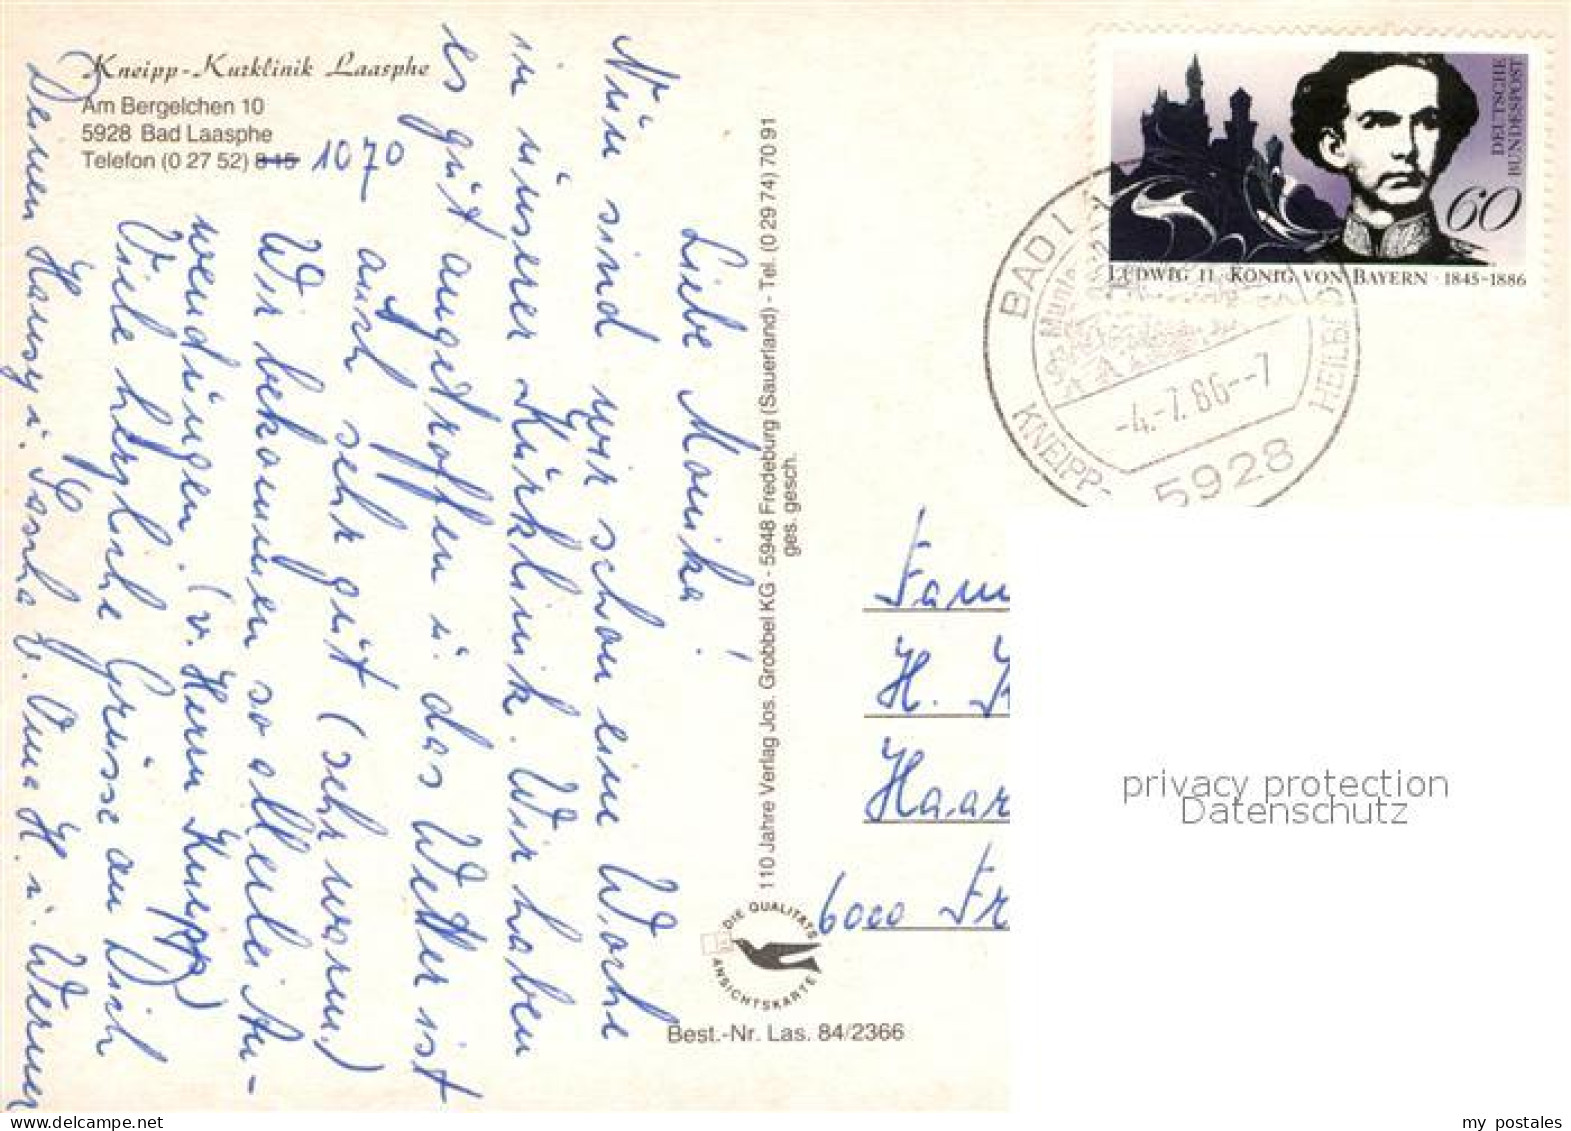 Kneipp-Kurklinik Laasphe
Am Bergelchen 10
5928 Bad Laasphe
Telefon (0 27 52) 8 15 1070
Liebe Monika!
Nun sind wir schon eine Woche
in unserer Kurklinik. Wir haben
es gut angetroffen u. das Wetter ist
auch sehr gut (sehr warm.)
Wir bekommen so allerlei An-
wendungen. (v. Herrn Kneipp)
Viele herzliche Grüsse an Dich
Deinen Hansy u. Sascha v. Oma H. u. Werner
110 Jahre Verlag Jos. Grobbel KG - 5948 Fredeburg (Sauerland) - Tel. (0 29 74) 70 91
ges. gesch.
DIE QUALITÄTS
ANSICHTSKARTE
Best.-Nr. Las. 84/2366
DEUTSCHE
BUNDESPOST
60
LUDWIG II. KÖNIG VON BAYERN · 1845-1886
BAD L
-4.-7.86--7
KNEIPP-
HEILB
5928
Fam
H.
Haar
6000 Fr
privacy protection
Datenschutz
my postales